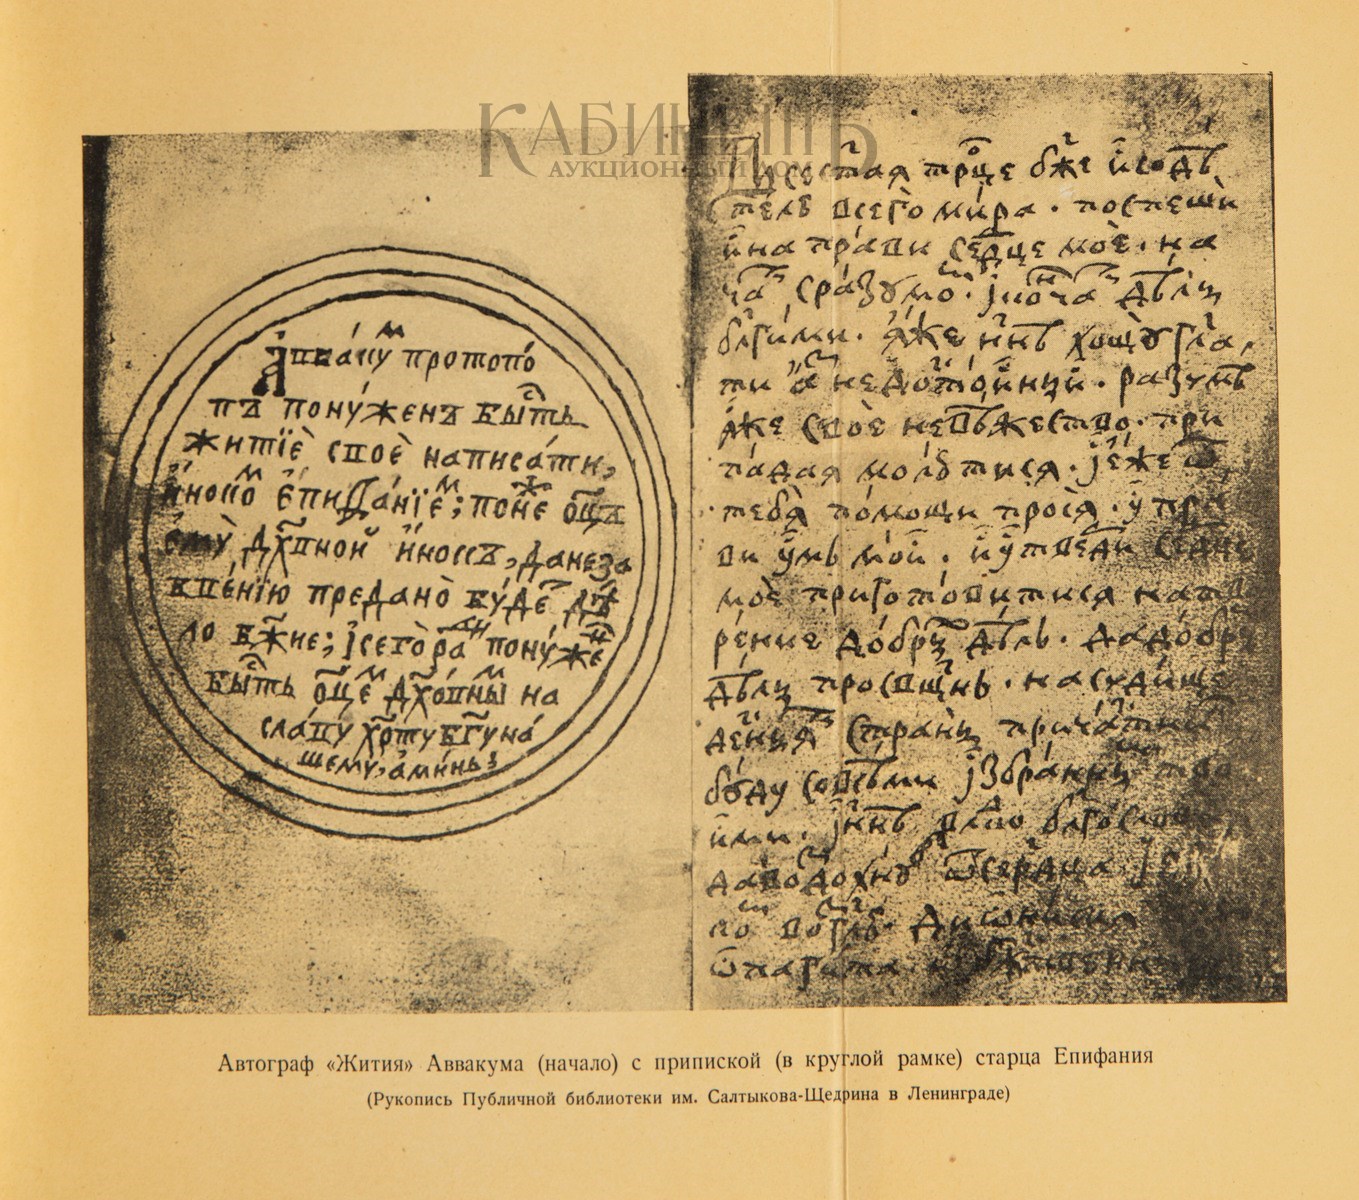 КАБИНЕТЪ
АУКЦИОННЫЙ ДОМ
Аввакум протопо
пъ понужен бысть
житие свое написати,
иноком Епифанием; понеж отецъ
ему духовной инокъ, да не за
бвению предано будет дѣ
ло божие; и сего ради понужен
бысть отцем духовным на
славу христу богу на
шему, аминь:
Всесвятая троице боже и содѣ
телю всего мира. поспеши
и направи сердце мое. на
чати с разумом. и кончати дѣлы
благими. яже ныне хощу глаголa
ти аз недостойный. разумѣя
же свое невѣжество. при
падая молю ти ся. и еже от
тебя помощи прося. упра
ви ум мой. и утверди сердце
мое приготовитися на тво
рение добрых дѣл. да добры
дѣлы просвещен. на судище
десныя страны причастник
буду со всѣми избранными тво
ими. и ныне владыко благослови
да воздохнув от сердца
Дионисия
ареопагита
Автограф «Жития» Аввакума (начало) с припиской (в круглой рамке) старца Епифания
(Рукопись Публичной библиотеки им. Салтыкова-Щедрина в Ленинграде)